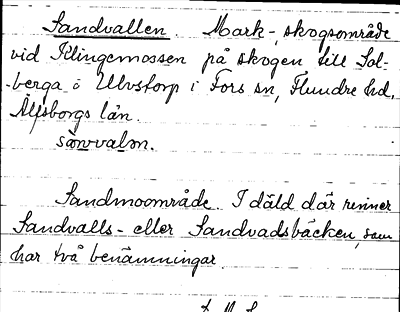 Sandvallen. Mark-, skogsområde
vid Klingemossen på skogen till Sol-
-berga o Ulvstorp i Fors sn, Flundre hd,
Älfsborgs län.
sànvaln.
Sandmoområde. I däld där rinner
Sandvalls- eller Sandvadsbäcken, som
har två benämningar